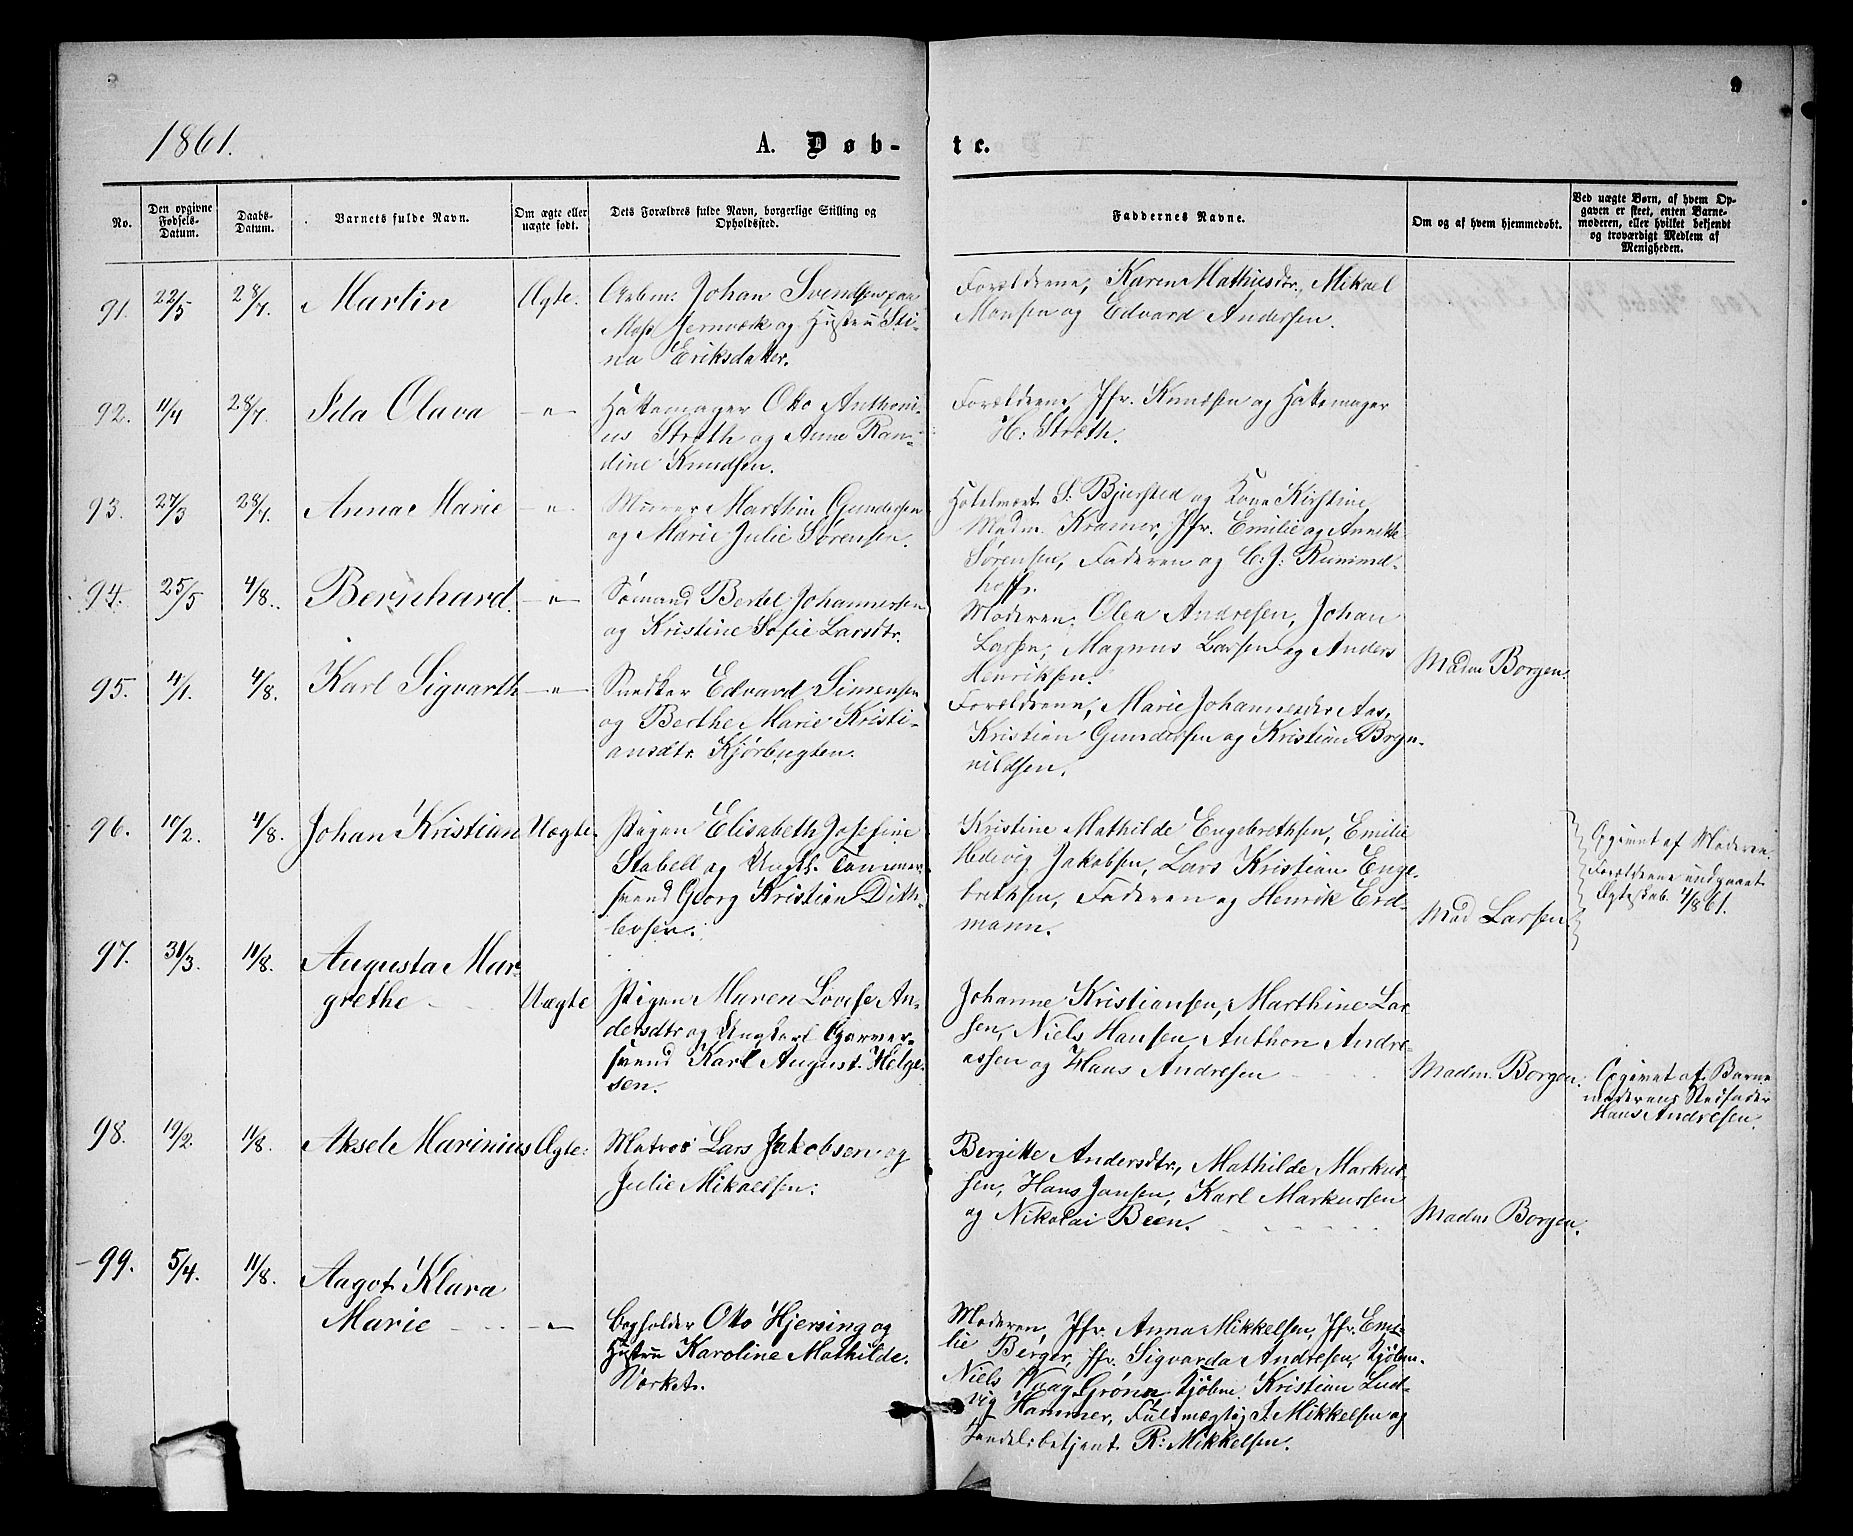 9
1861.
A. Døb-
te.
No.
Den opgivne
Fødsels-
Datum.
Daabs-
Datum.
Barnets fulde Navn.
Om ægte eller
uægte født.
Dets Forældres fulde Navn, borgerlige Stilling og
Opholdssted.
Faddernes Navne.
Om og af hvem hjemmedøbt.
Ved uægte Børn, af hvem Op-
gaven er skeet, enten Barne-
moderen, eller hvilket bekjendt
og troværdigt Medlem af
Menigheden.
91. 22/5 28/7. Martin Ægte.
Arbm: Johan Svendsen paa
Moss Jernværk og Hustru Sti-
na Eriksdatter.
Forældrene, Karen Mathisdtr, Mikael
Monsen og Edvard Andersen.
92. 11/4 28/7. Ida Olava — " —
Hattemager Otto Anthoni-
us Stræth og Anne Ran-
dine Knudsen.
Forældrene, Jfr. Knudsen og Hattemager
H: Stræth.
93. 27/3 28/7. Anna Marie — " —
Murer Marthin Gundersen
og Marie Julie Sørensen.
Hotelvært S. Bjersted og Kone Kirstine,
Madm. Kramer, Jfr. Emilie og Annette
Sørensen, Faderen og C. J. Rummel-
hoff.
94. 25/5 4/8. Bernhard. — " —
Sømand Bertel Johannessen
og Kristine Sofie Larsdtr.
Moderen, Olea Andresen, Johan
Larsen, Magnus Larsen og Anders
Henriksen.
95. 4/1. 4/8. Karl Sigvarth — " —
Snedker Edvard Simensen
og Berthe Marie Kristi-
ansdtr. Kjørbugten.
Forældrene, Marie Johannesdtr Aas,
Kristian Gundersen og Kristian Bryn-
ildsen.
Madm Borgen.
96. 10/2. 4/8. Johan Kristian Uægte.
Pigen Elisabeth Josefine
Stabell og Ungk. Tømmer-
svend Georg Kristian Dith-
lefsen.
Kristine Mathilde Engebrethsen, Emilie
Hedevig Jakobsen, Lars Kristian Enge-
brethsen, Faderen og Henrik Erd-
mann.
Mad Larsen
Opgivet af Moderen.
Forældrene indgaaet
Ægteskab. 4/8 61.
97. 31/3. 11/8. Augusta Mar-
grethe Uægte
Pigen Maren Lovise An-
dersdtr og Ungkarl Garver-
svend Karl August Helge-
sen.
Johanne Kristiansen, Marthine Lar-
sen, Niels Hansen, Anthon Andre-
assen og Hans Andresen
Madm. Borgen.
Opgivet af Barne
moderens Stedfader
Hans Andresen.
98. 19/2. 11/8. Aksel Marinius Ægte:
Matros Lars Jakobsen og
Julie Mikaelsen.
Bergitte Andersdtr, Mathilde Markus-
sen, Hans Jansen, Karl Markussen
og Nikolai Been.
Madm Borgen.
99. 5/4. 11/8. Aagot Klara
Marie — " —
Bogholder Otto Hjersing og
Hustru Karoline Mathilde.
Værket.
Moderen, Jfr. Anna Mikkelsen, Jfr. Emi-
lie Berger, Jfr. Sigvarda Andresen, Kjøbm.
Niels Waag Grønn, Kjøbm. Kristian Lud-
vig Hammer, Fuldmægtig J. Mikkelsen og
Handelsbetjent R: Mikkelsen.